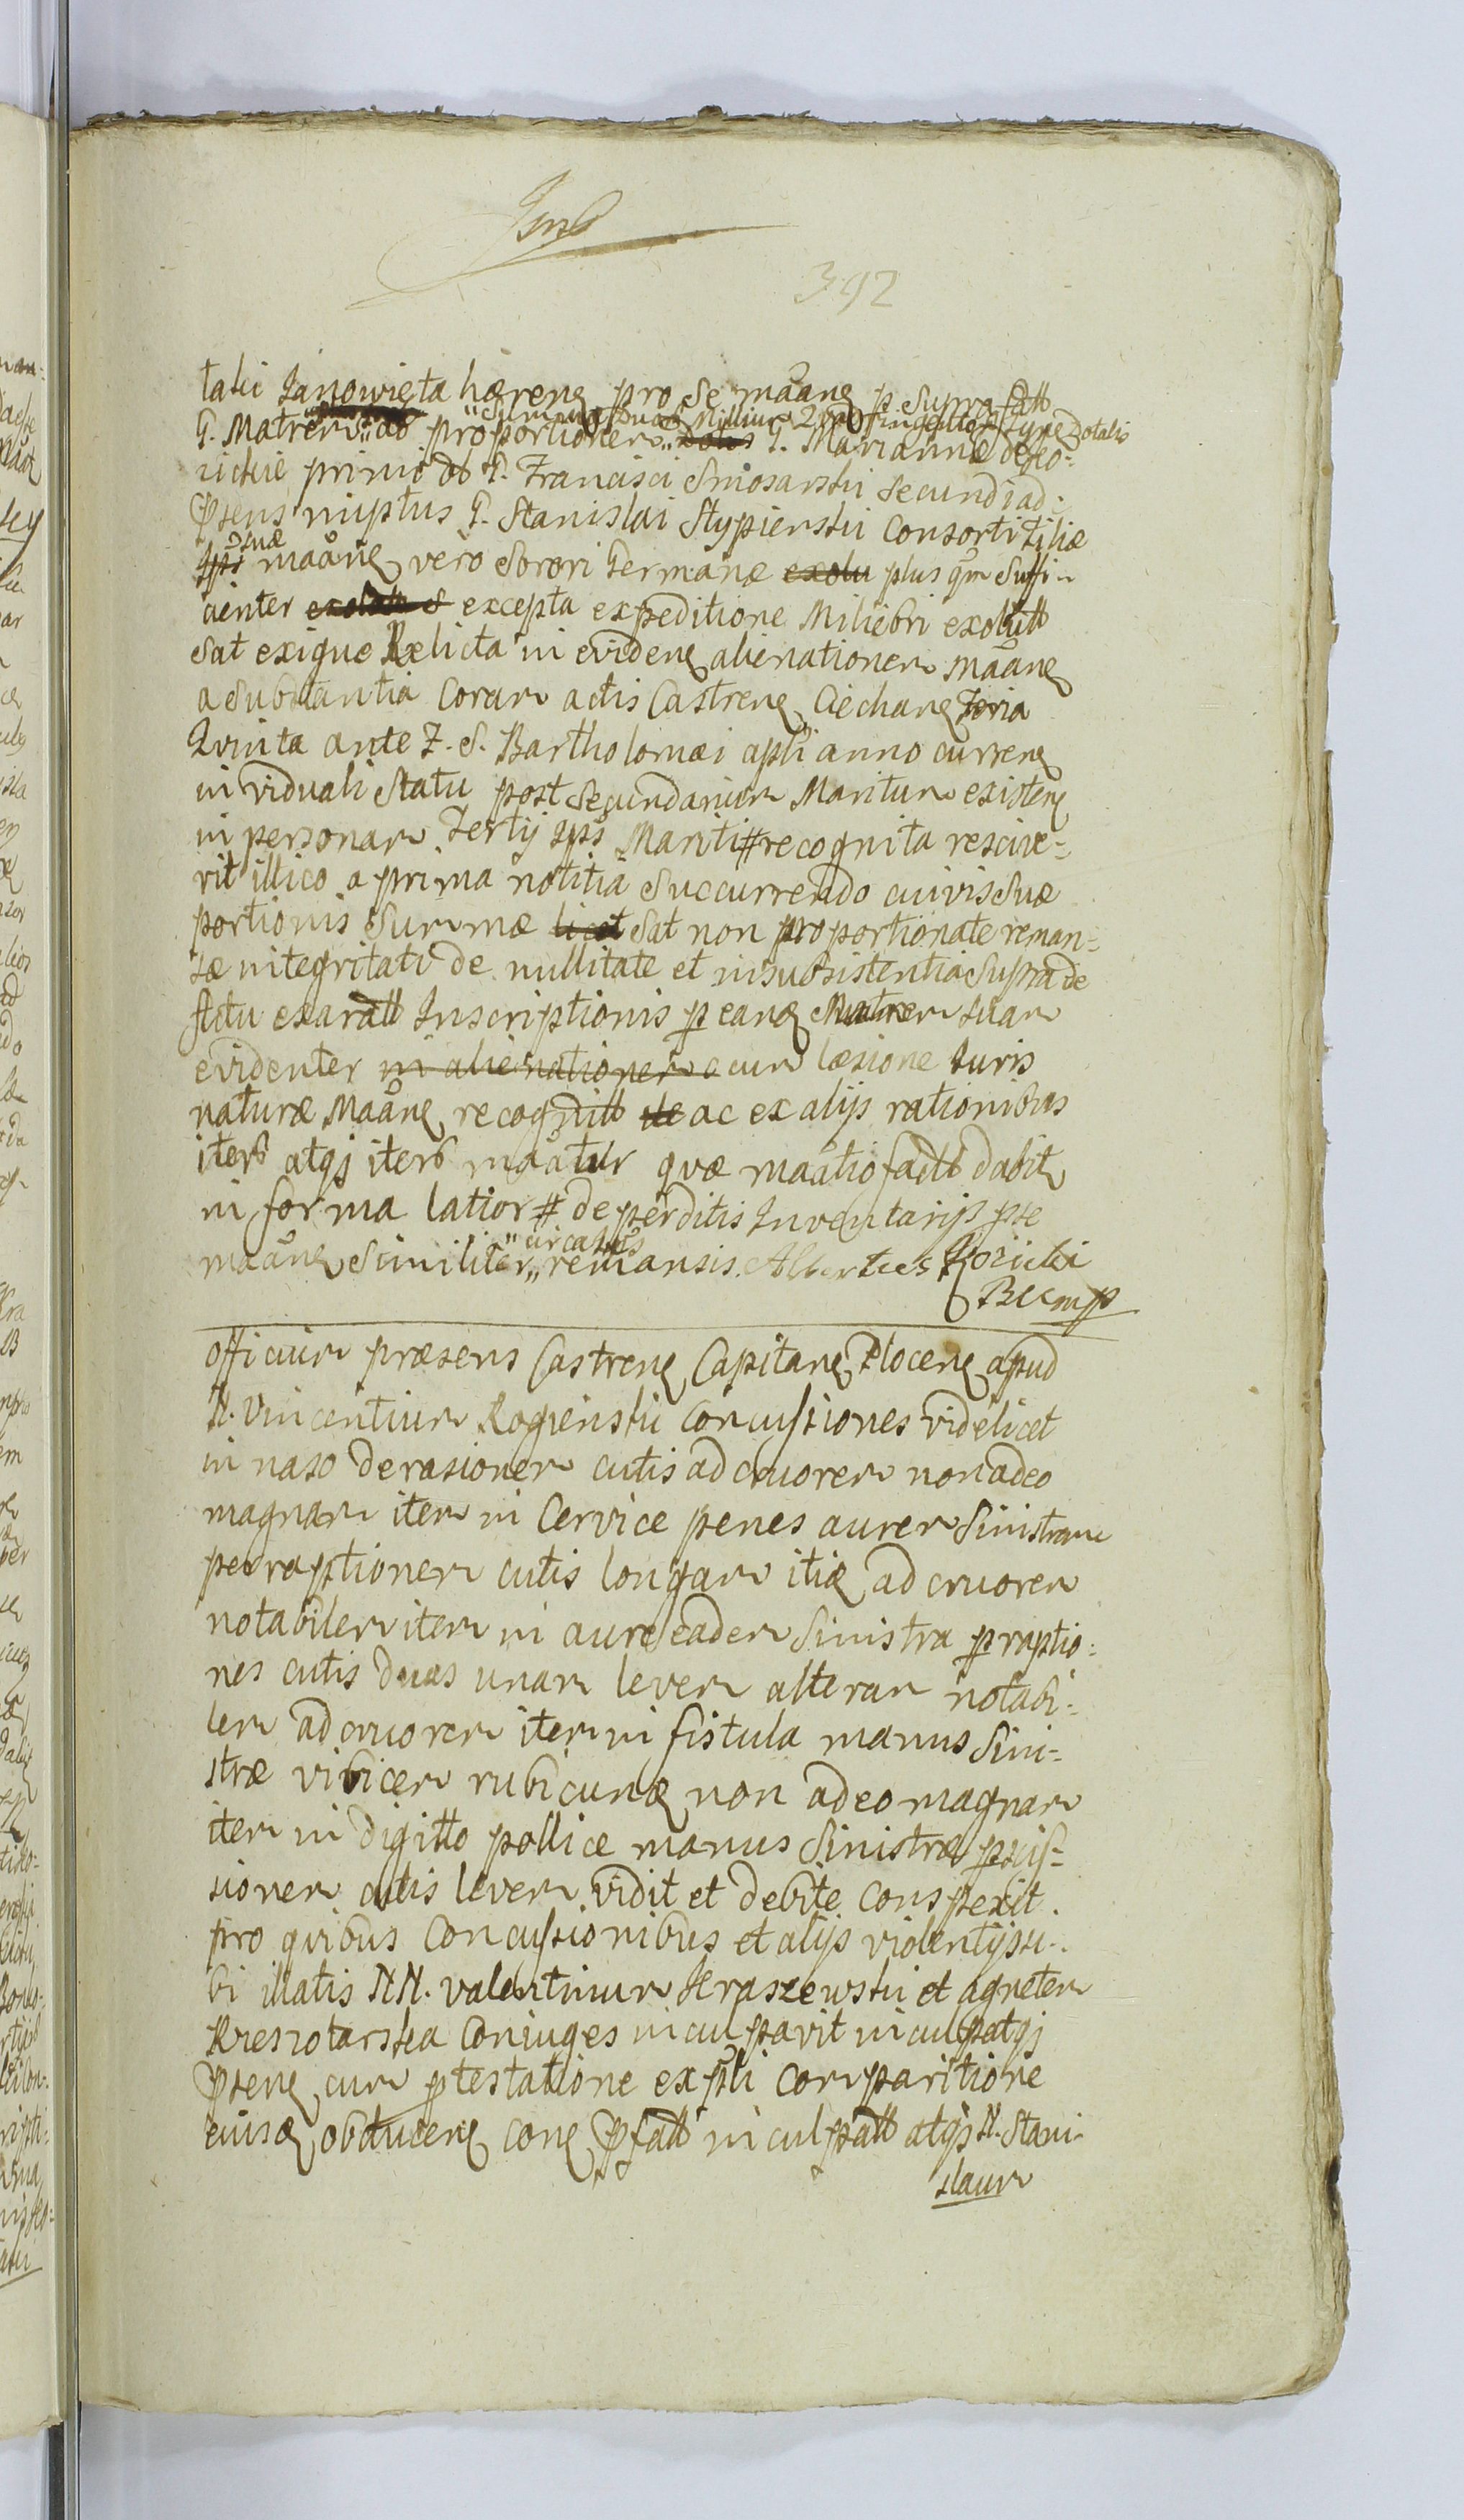 392
talii Janowięta hæreng pro se mãang p supra fatt
G. Matrem ab proportionem G. Mariannæ de Ro-
prsens nuptus G. Stanislai Stypienski Consorti Filiæ
suæ
mãang vero Sorori Germanæ exolu plus qm suffi-
cienter excepta expeditione Miliebri exolutt
sat exigue Relicta in evideng alienationem mãang
a substantia coram actis Castreng Ciechang Feria
Quinta ante F. S. Bartholomæi apli anno curreng
in viduali statu post secundarium Maritum existeng
in personam Tertij ips Mariti # recognita rescive-
rit illico a prima notitia succurrendo cuivis suæ
portionis summæ licet sat non proportionate reman-
sæ integritati de nullitate et insubsistentia supra de
actu exaratt Inscriptionis p eang Matrem suam
evidenter in alienationem cum læsione Iuris
naturæ Mãang recognitt de ac ex alijs rationibus
iterb atqj iterb mãatur quæ mãatio factb dabit
in forma latior # de perditis Inventarijs pse
circa
mãang similiter remansis. Albertus
officium præsens Castreng Capitang Ploceng apud
N. Vincentium Rogienski concussiones videlicet
in naso derasionem cutis ad cruorem non adeo
magnam item in Cervice penes aurem sinistram
perraptionem cutis longam itiq ad cruorem
notabilem item in aure eadem sinistra praptio-
nes cutis duas unam levem alteram notabi-
lem ad cruorem item in fistula manus sini-
stræ vibicem rubicung non adeo magnam
item in digitto pollice manus sinistræ pscis-
sionem cutis levem vidit et debite conspexit.
pro quibus concussionibus et alijs violentijs si-
bi illatis NN. Valentinum Kraszewski et Agnetem
Coniuges inculpavit inculpatqj
prseng cum ptestatione expli comparitione
eiusq obduceng cong prfatt inculpatt atqj N. Stani-
slaum